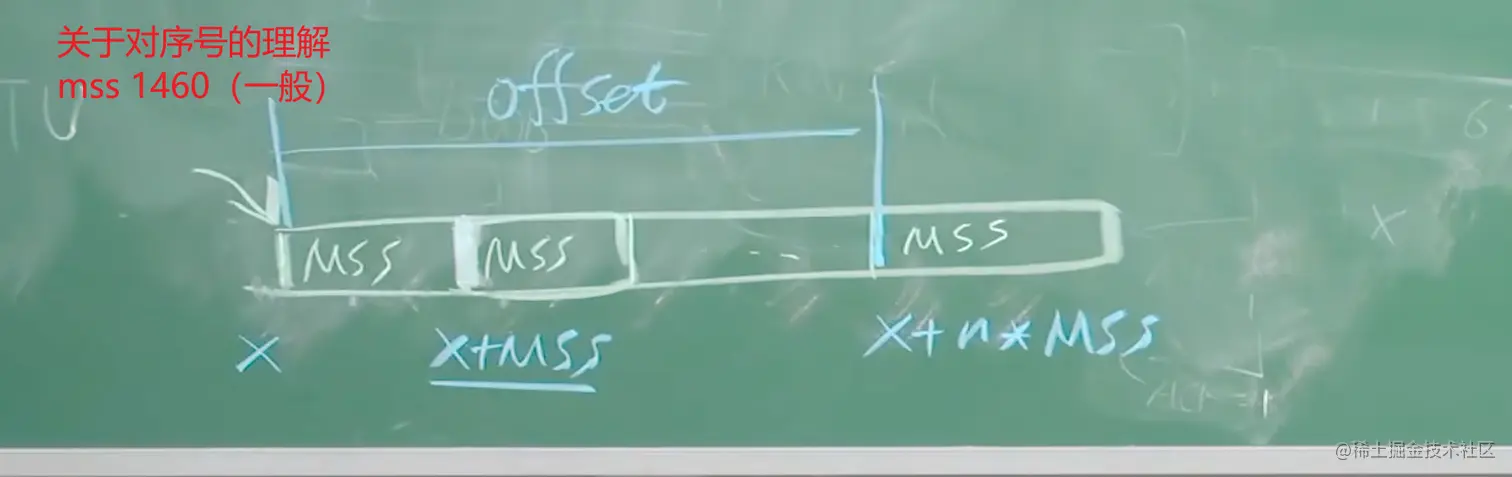 关于对序号的理解
mss 1460（一般）
TU
offset
6
MSS MSS -- MSS
X
X X+MSS X+n*MSS
@稀土掘金技术社区